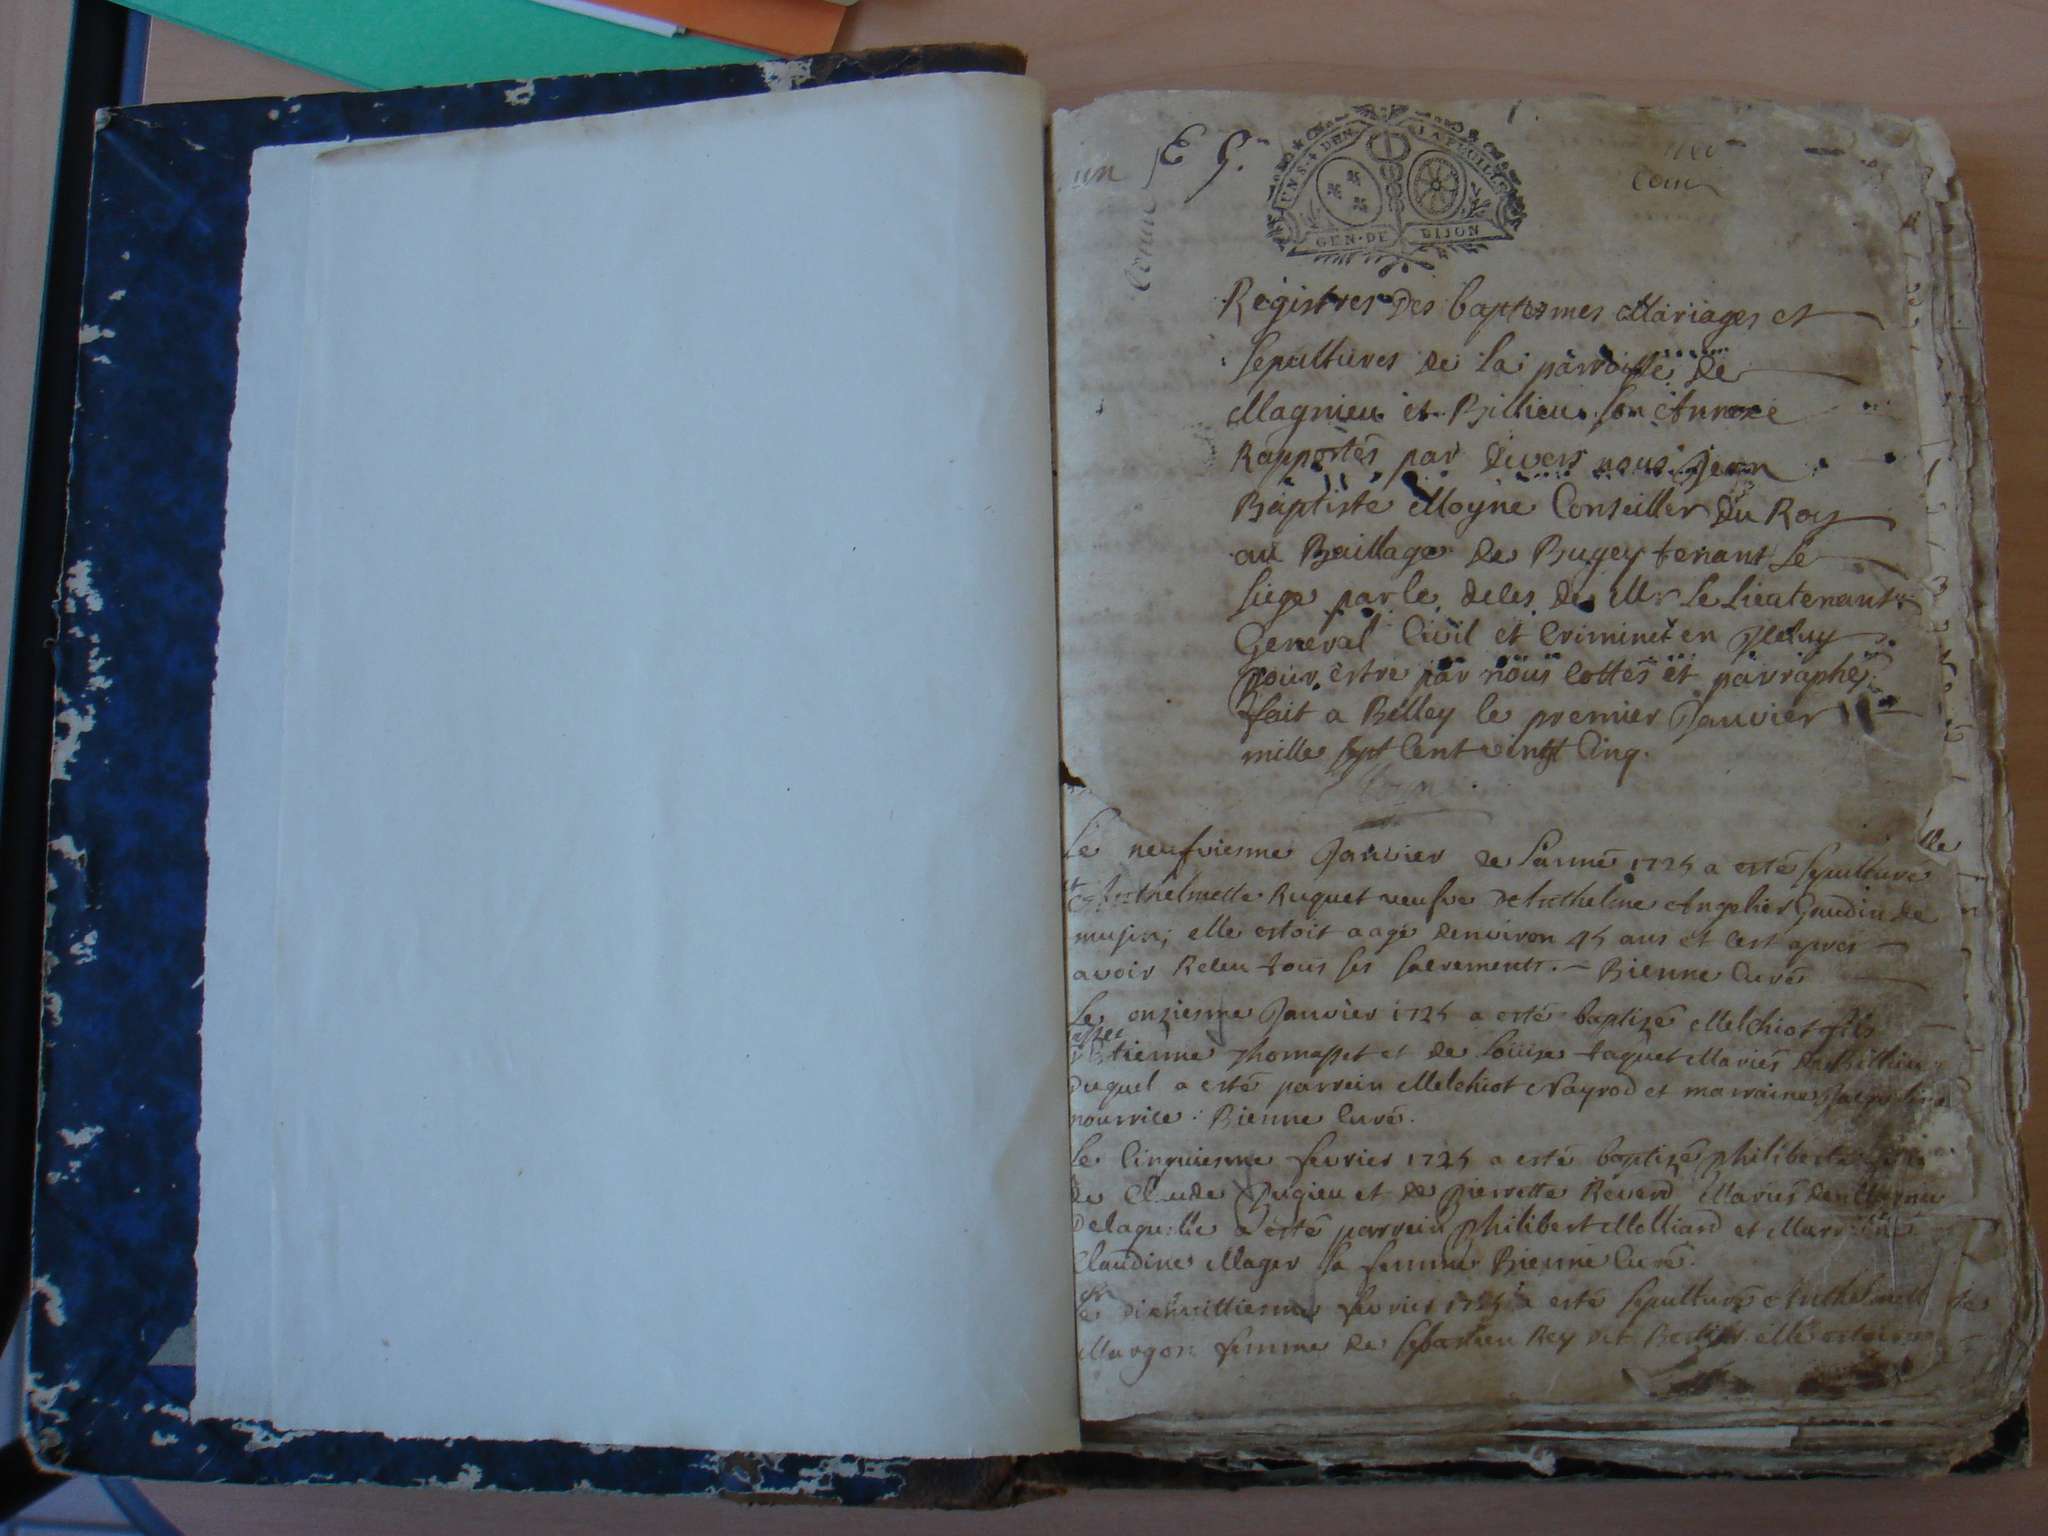 GEN. DE DIJON
Registres Des baptesmes Mariages et
Sepultures de la parroisse de
Magnieu et Billieu son Annexe
Rapportés par devers nous Jean
Baptiste Moyne Conseiller Du Roy
au Baillage de Bugey tenant le
siege par le deces de Mr le Lieutenant
General Civil et Criminel en
pour estre par nous Cottés et parraphés
fait a Belley le premier Janvier
mille sept Cent vingt Cinq.
Le neufviesme Janvier de l'année 1725 a esté sepulturé
Ruquet veufve Anthelme Angelier Gaudin de
musin; elle estoit aagé denviron 45 ans et cest apres
avoir Receu tous ses sacrements. – Bienne Curé
Le onziesme Janvier 1725 a esté baptizé Melchiot fils
Etienne Thomasset et de Louise taquet Mariés de Billieu
Duquel a esté parrein Melchiot Nayrod et marraine
nourrice : Bienne Curé.
Le Cinquiesme fevrier 1725 a esté baptizé philiberte
de Claude Pugieu et de Pierrette Reverd Mariés
Delaquelle a esté parrein Philibert Molliard et Marraine
Claudine Mager sa femme Bienne Curé.
Le dixhuittiesme fevrier 1725 a esté sepulturé
Margon femme de Sebastien Rey dit elle estoit